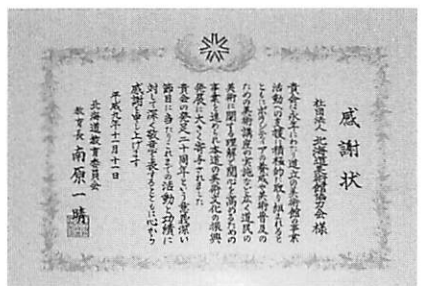 感謝状
社団法人 北海道美術館協力会 様
貴会は永年にわたり道立の美術館の事業
活動への支援に積極的に取り組まれると
ともにボランティアの育成や美術普及の
ための美術講座の実施など広く道民の
美術に関する理解と関心を高めるための
事業を進められ本道の美術文化の振興
発展に大きく寄与されました
貴会の発足二十周年という意義深い
節目に当たりこれまでの活動と功績に
対して深く敬意を表するとともに心から
感謝を申し上げます
平成九年十一月十二日
北海道教育委員会
教育長 南原一晴